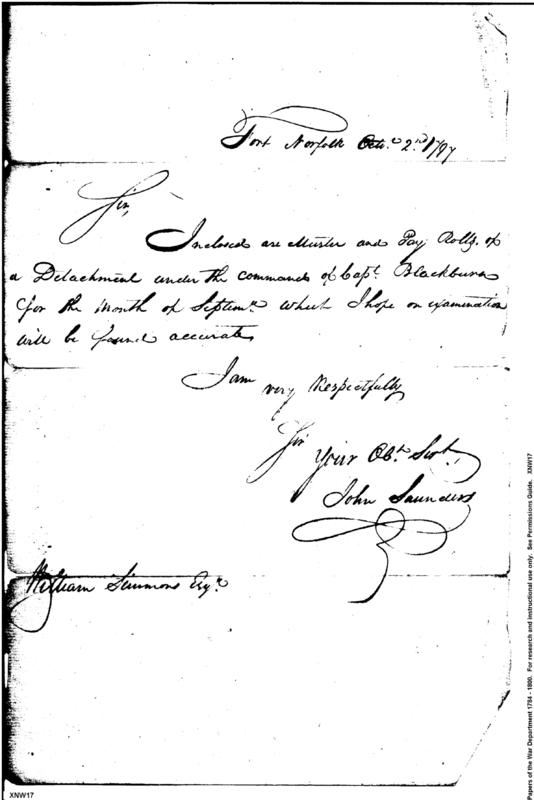 Fort Norfolk Octr. 2nd 1797
Sir,
Inclosed are Muster and Pay Rolls, of
a Detachment under the command of Capt. Blackburn
for the Month of Septemr. which I hope on examination
will be found accurate
I am very Respectfully
Sir your Obt. Servt.
John Saunders
William Simmons Esqr.
XNW17
Papers of the War Department 1784 - 1800. For research and instructional use only. See Permissions Guide. XNW17